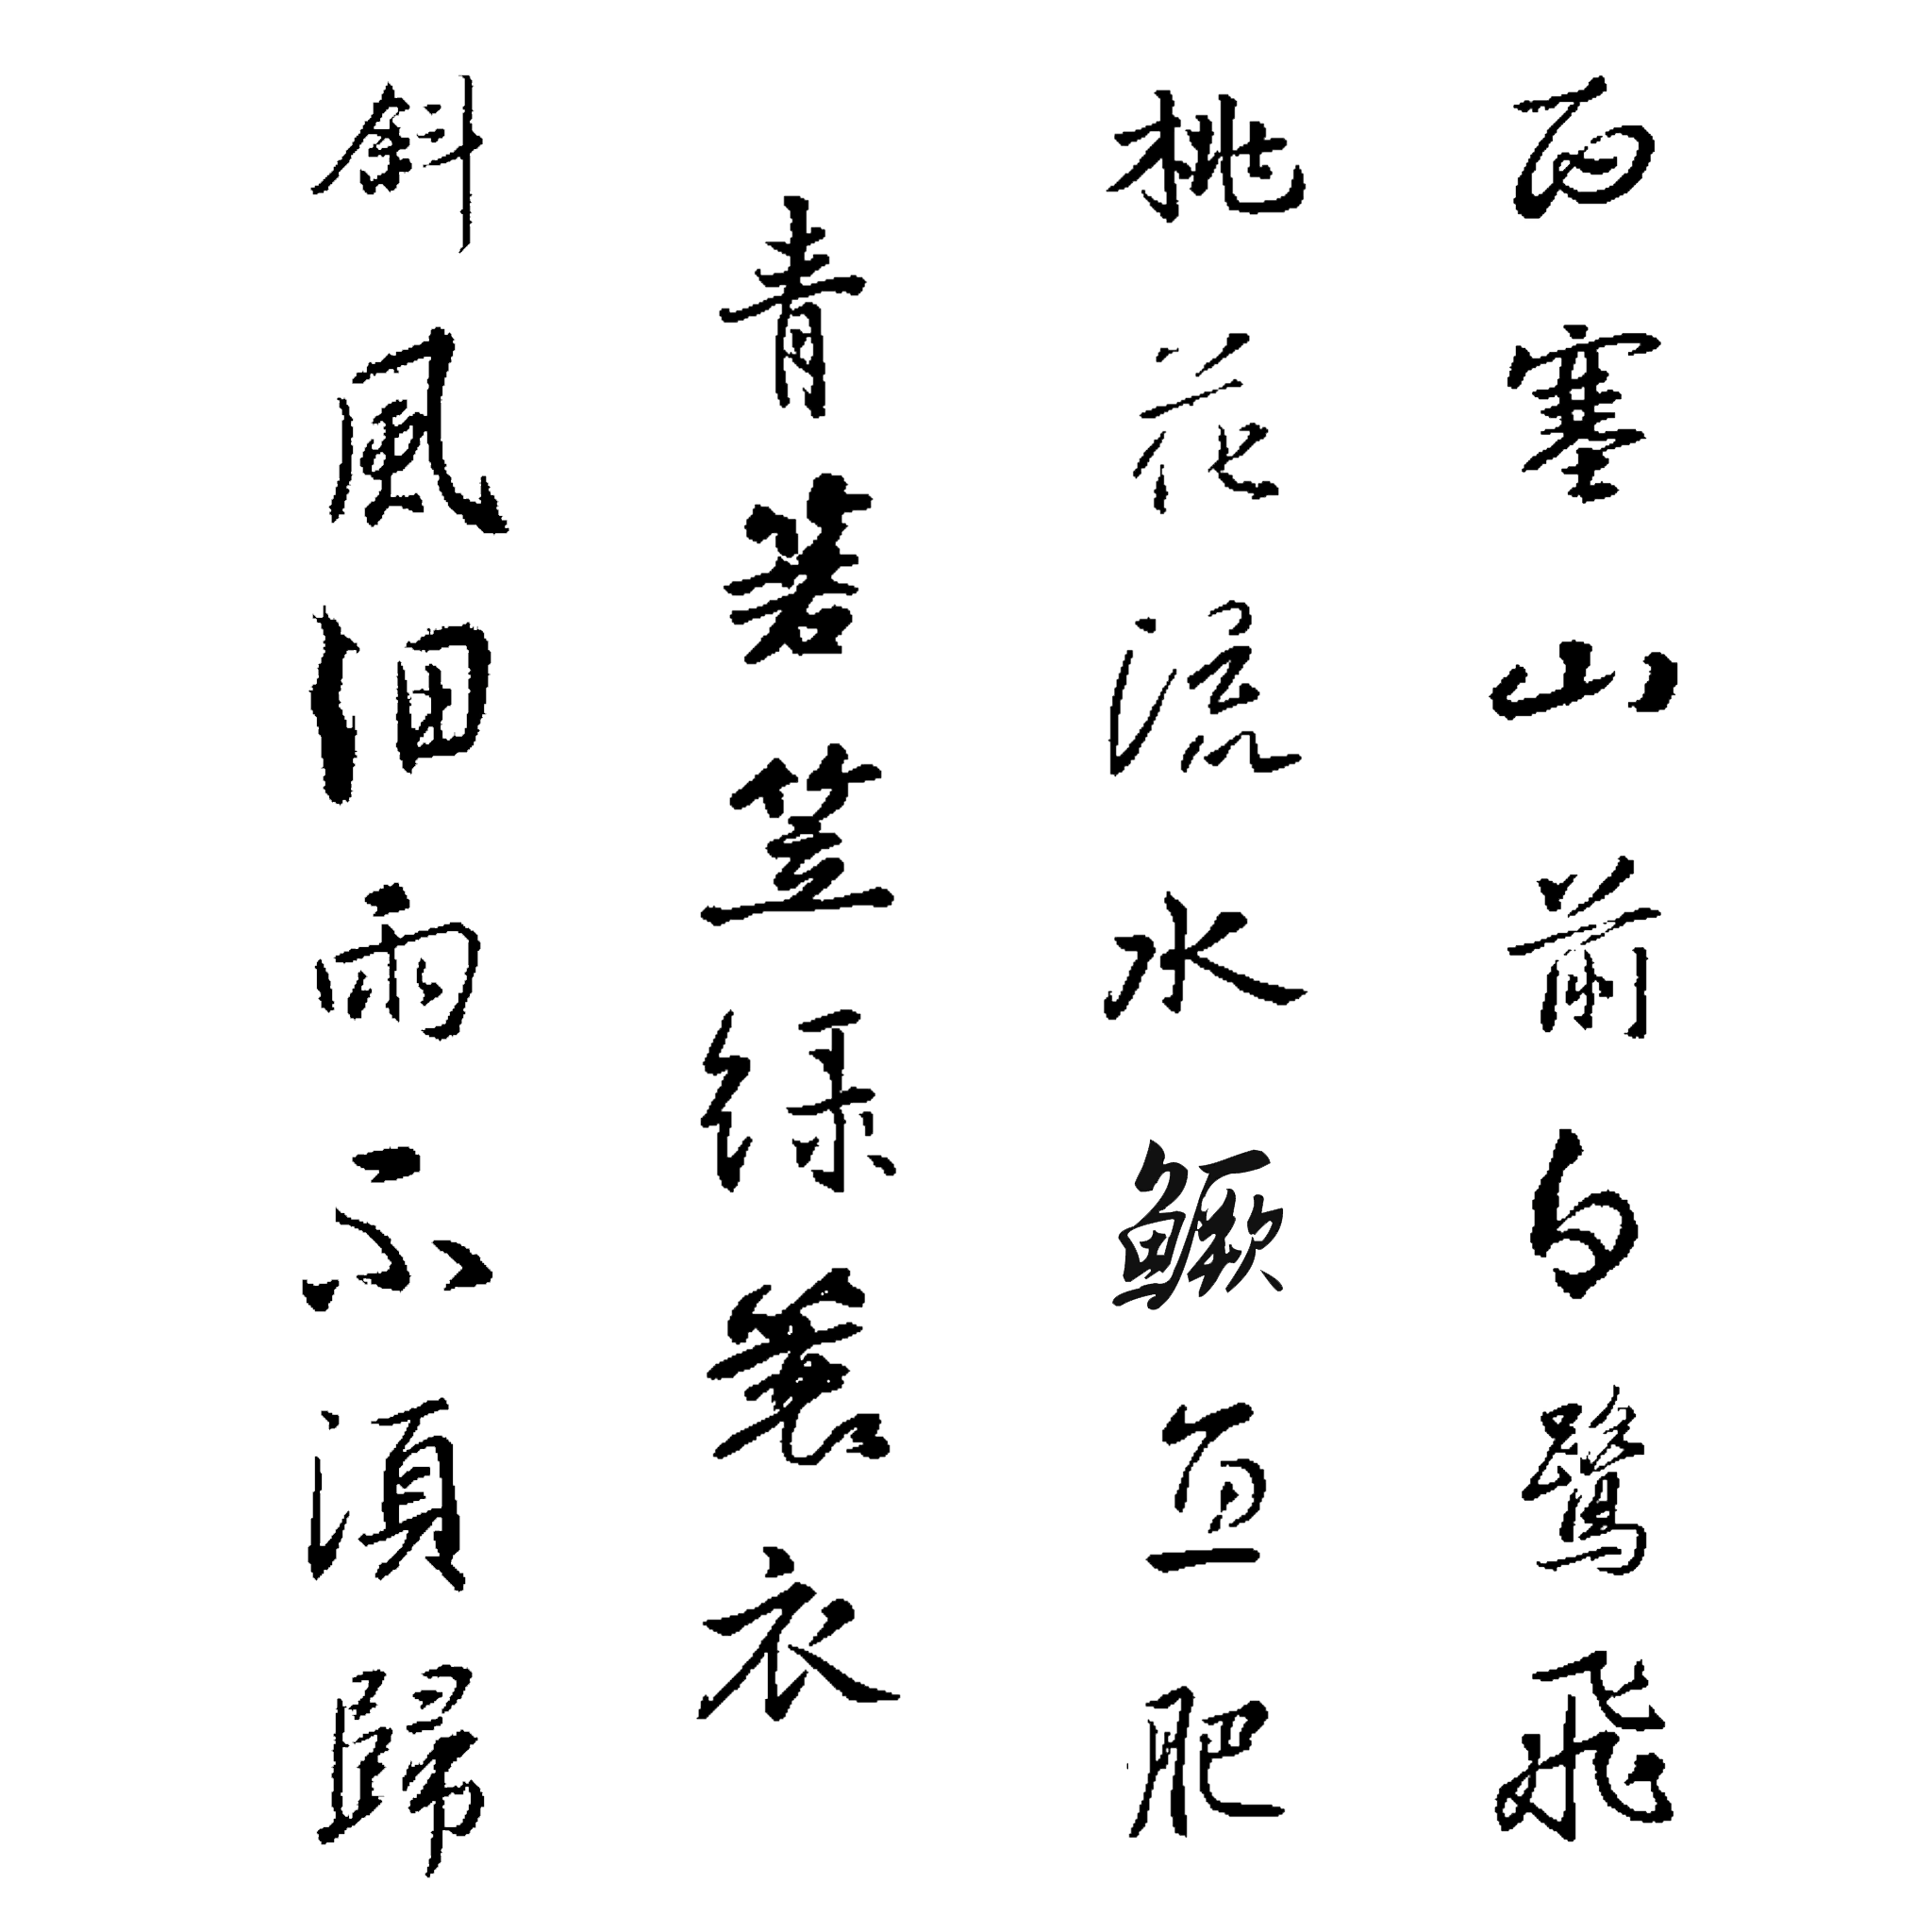 西塞山前白鷺飛
桃花流水鱖魚肥
青箬笠綠蓑衣
斜風細雨不須歸